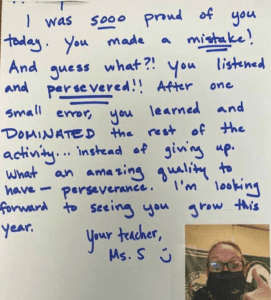 I was sooo proud of you
today. You made a mistake!
And guess what?! You listened
and persevered!! After one
small error, you learned and
DOMINATED the rest of the
activity... instead of giving up.
What an amazing quality to
have – perseverance. I'm looking
forward to seeing you grow this
year.
Your teacher,
Ms. S